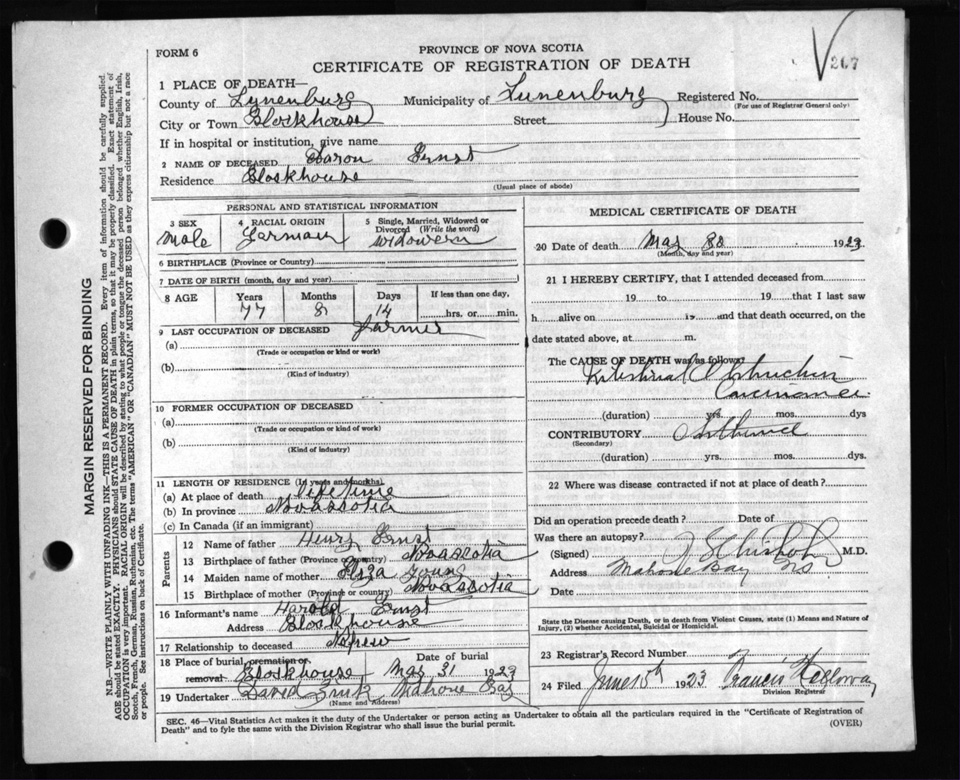 FORM 6
PROVINCE OF NOVA SCOTIA
CERTIFICATE OF REGISTRATION OF DEATH
267
1 PLACE OF DEATH—
County of Lynenburg Municipality of Lunenburg Registered No.
(For use of Registrar General only)
City or Town Blockhouse Street House No.
If in hospital or institution, give name
2 NAME OF DECEASED Aaron Ernst
Residence Blockhouse
(Usual place of abode)
PERSONAL AND STATISTICAL INFORMATION
3 SEX 4 RACIAL ORIGIN 5 Single, Married, Widowed or Divorced (Write the word)
Male Garman widowern
6 BIRTHPLACE (Province or Country)
7 DATE OF BIRTH (month, day and year)
8 AGE Years Months Days If less than one day,
77 8 14 hrs. or min.
9 LAST OCCUPATION OF DECEASED Farmer
(a)
(Trade or occupation or kind of work)
(b)
(Kind of industry)
10 FORMER OCCUPATION OF DECEASED
(a)
(Trade or occupation or kind of work)
(b)
(Kind of industry)
11 LENGTH OF RESIDENCE (In years and months)
(a) At place of death life time
(b) In province Novascotia
(c) In Canada (if an immigrant)
Parents
12 Name of father Henry Ernst
13 Birthplace of father (Province or country) Novascotia
14 Maiden name of mother Eliza Young
15 Birthplace of mother (Province or country) Novascotia
16 Informant's name Harold Ernst
Address Blockhouse
17 Relationship to deceased Nephew
18 Place of burial, cremation or removal Date of burial
Blockhouse May 31 1923
19 Undertaker David Mahone Bay
(Name and Address)
MEDICAL CERTIFICATE OF DEATH
20 Date of death May 1923
(Month, day and year)
21 I HEREBY CERTIFY, that I attended deceased from
19 to 19 that I last saw
h alive on 19 and that death occurred, on
date stated above, at m.
The CAUSE OF DEATH was as follows:
Intestinal Obstruction
Carcinoma
(duration) yrs. mos. dys
CONTRIBUTORY
(Secondary)
(duration) yrs. mos. dys.
22 Where was disease contracted if not at place of death?
Did an operation precede death? Date of
Was there an autopsy?
(Signed) J Chisholm M.D.
Address Mahone Bay NS
Date
State the Disease causing Death, or in death from Violent Causes, state (1) Means and Nature of
Injury, (2) whether Accidental, Suicidal or Homicidal.
23 Registrar's Record Number
24 Filed June 1923 Francis Helloway
Division Registrar
SEC. 46—Vital Statistics Act makes it the duty of the Undertaker or person acting as Undertaker to obtain all the particulars required in the "Certificate of Registration of
Death" and to fyle the same with the Division Registrar who shall issue the burial permit.
(OVER)
MARGIN RESERVED FOR BINDING
N.B.—WRITE PLAINLY WITH UNFADING INK—THIS IS A PERMANENT RECORD. Every item of information should be carefully supplied.
AGE should be stated EXACTLY. PHYSICIANS should STATE CAUSE OF DEATH in plain terms, so that it may be properly classified. Exact statement of
OCCUPATION is very important. RACIAL ORIGIN will be described by stating to what people or tongue the deceased person belonged whether English, Irish,
Scotch, French, German, Russian, Ruthenian, etc. The terms "AMERICAN" OR "CANADIAN" MUST NOT BE USED as they express citizenship but not a race
or people. See instructions on back of Certificate.